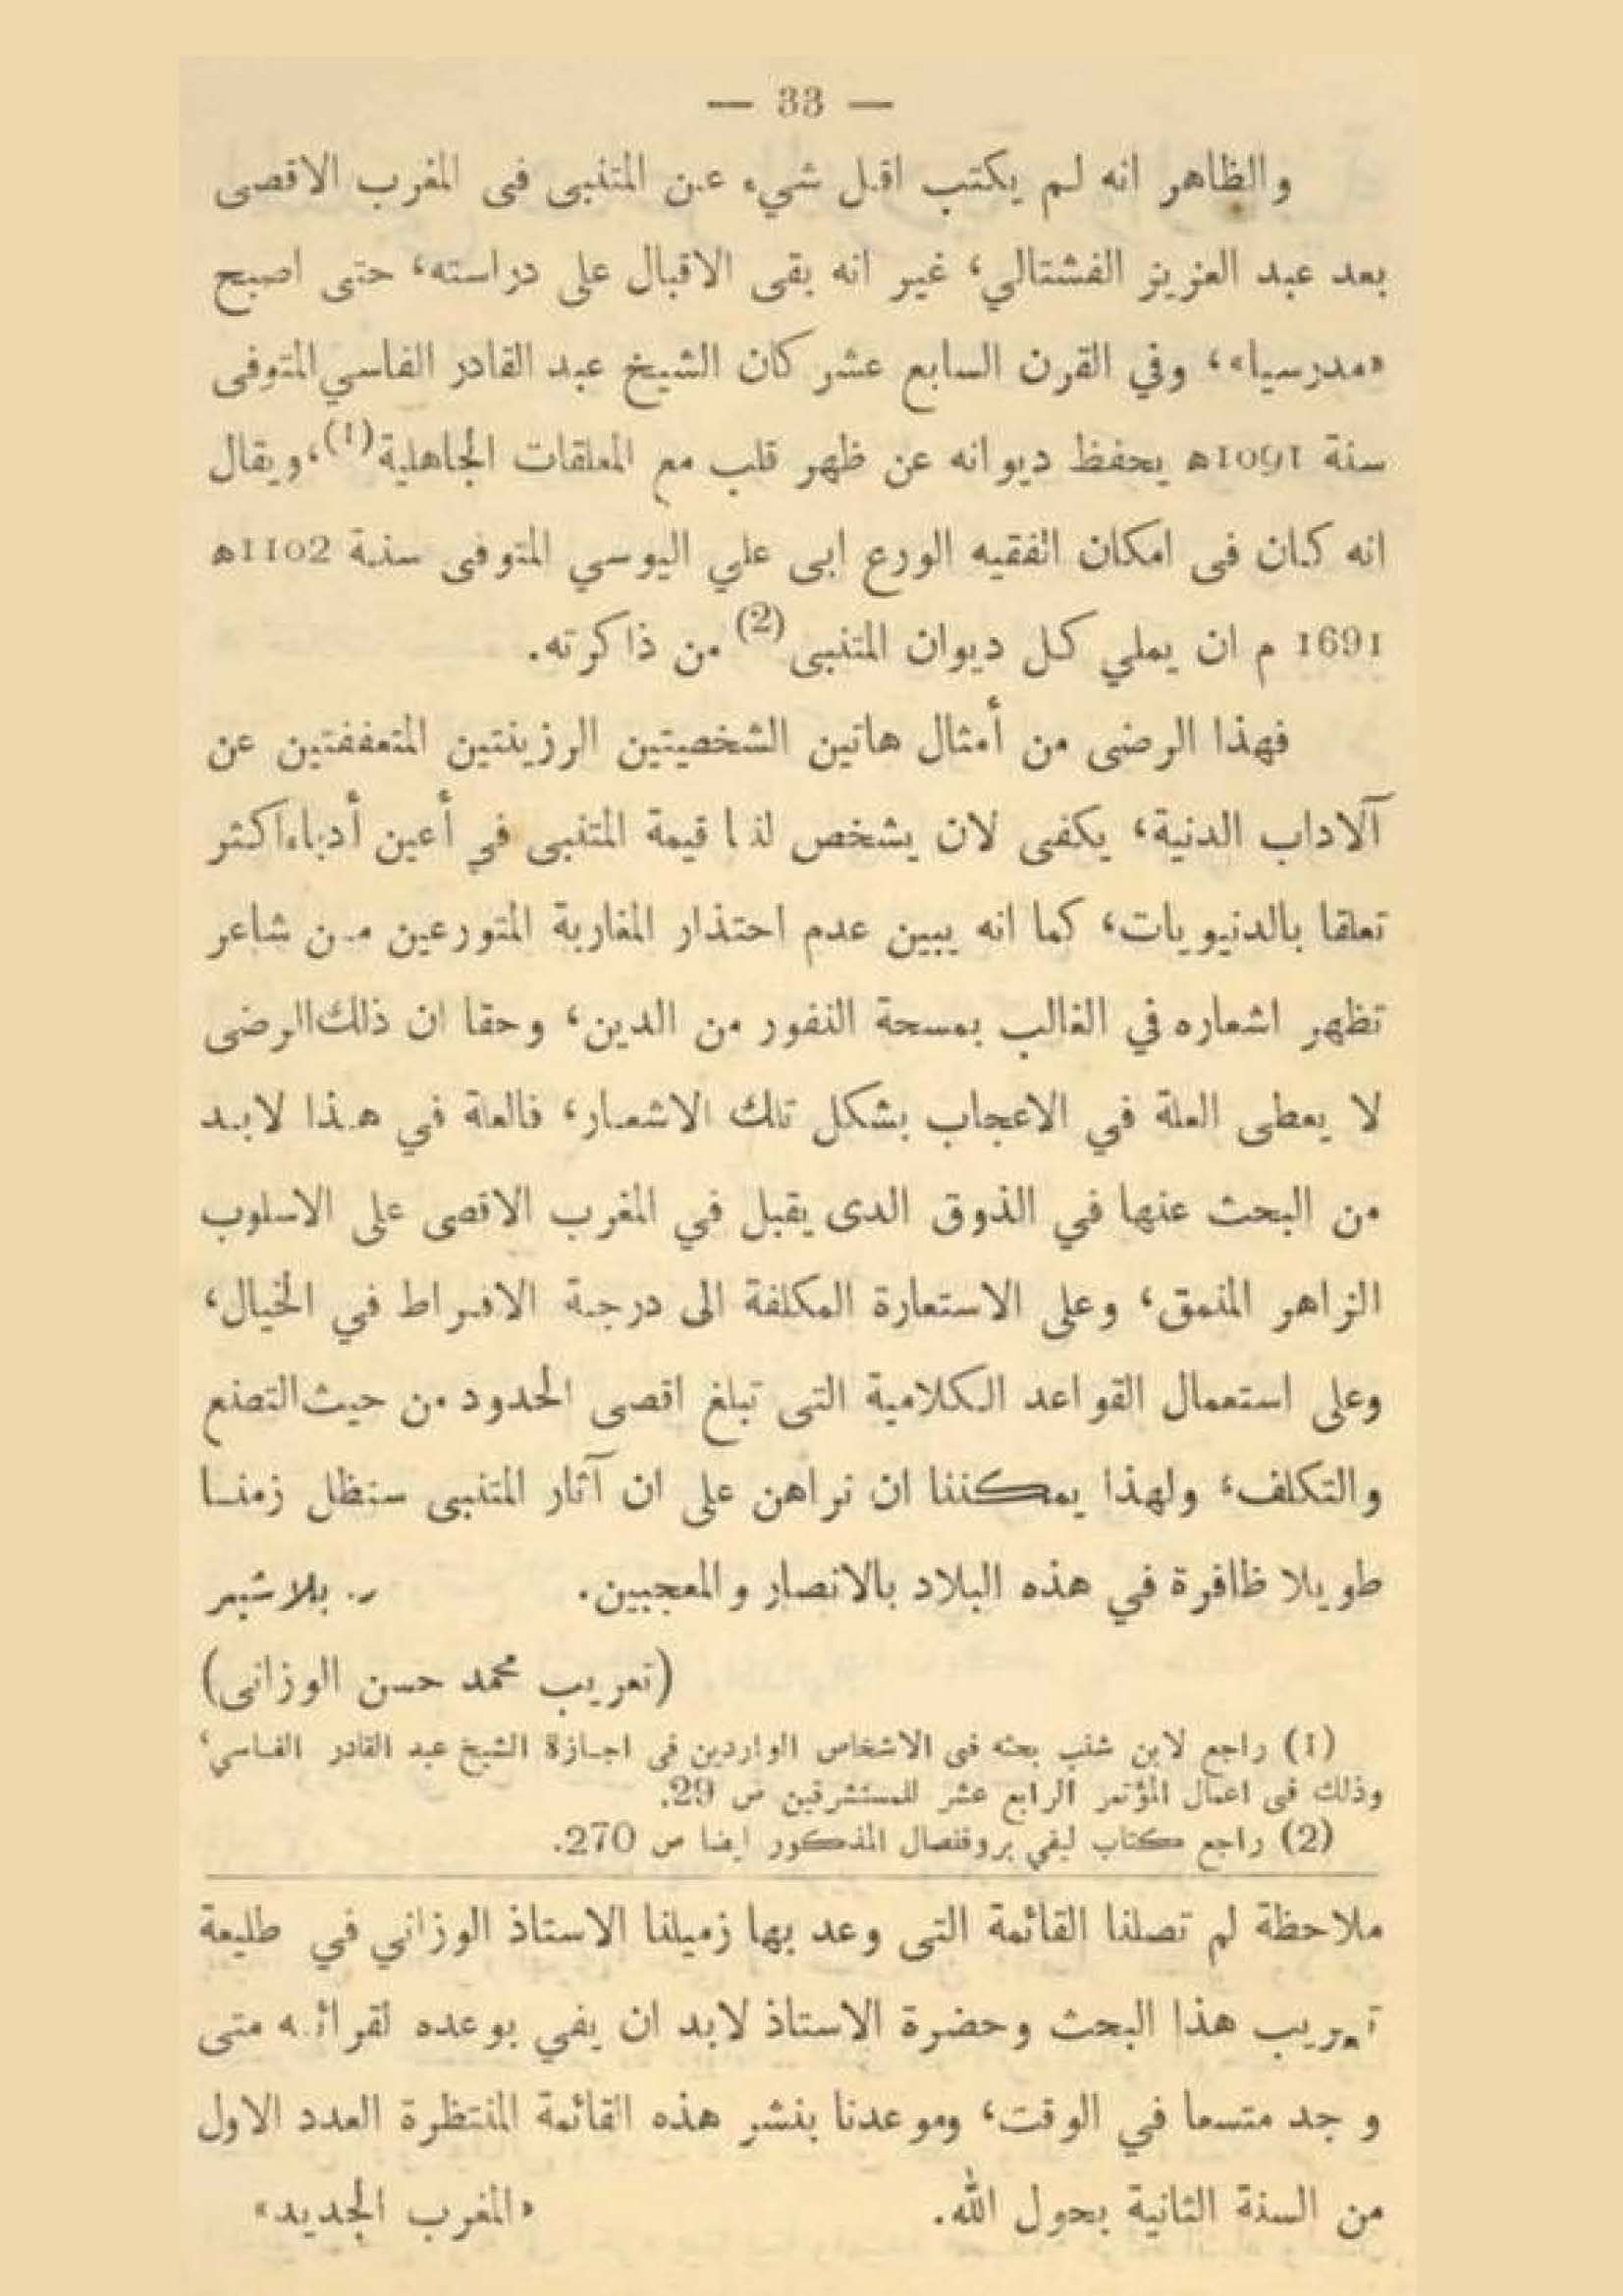 — 33 —
والظاهر انه لم يكتب اقل شيء عن المتنبى فى المغرب الاقصى
بعد عبد العزيز الفشتالي، غير انه بقى الاقبال على دراسته، حتى اصبح
«مدرسيا»، وفي القرن السابع عشر كان الشيخ عبد القادر الفاسي المتوفى
سنة 1091ه يحفظ ديوانه عن ظهر قلب مع المعلقات الجاهلية(1)، ويقال
انه كان فى امكان الفقيه الورع ابى علي اليوسي المتوفى سنة 1102ه
1691 م ان يملي كل ديوان المتنبى(2) من ذاكرته.
فهذا الرضى من أمثال هاتين الشخصيتين الرزينتين المتعففتين عن
آلاداب الدنية، يكفى لان يشخص لنا قيمة المتنبى في أعين أدباء اكثر
تعلقا بالدنيويات، كما انه يبين عدم احتذار المغاربة المتورعين من شاعر
تظهر اشعاره في الغالب بمسحة النفور من الدين، وحقا ان ذلك الرضى
لا يعطى العلة في الاعجاب بشكل تلك الاشعار، فالعلة في هذا لابد
من البحث عنها في الذوق الدى يقبل في المغرب الاقصى على الاسلوب
الزاهر المنمق، وعلى الاستعارة المكلفة الى درجة الافراط في الخيال،
وعلى استعمال القواعد الكلامية التى تبلغ اقصى الحدود من حيث التصنع
والتكلف، ولهذا يمكننا ان نراهن على ان آثار المتنبى ستظل زمنا
طويلا ظافرة في هذه البلاد بالانصار والمعجبين. ر. بلاشير
(تعريب محمد حسن الوزانى)
(1) راجع لابن شنب بحثه فى الاشخاص الواردين فى اجازة الشيخ عبد القادر الفاسي،
وذلك فى اعمال المؤتمر الرابع عشر للمستشرقين ص 29.
(2) راجع كتاب ليفي بروفنصال المذكور ايضا ص 270.
ملاحظة لم تصلنا القائمة التى وعد بها زميلنا الاستاذ الوزاني في طليعة
تعريب هذا البحث وحضرة الاستاذ لابد ان يفي بوعده لقرائه متى
وجد متسعا في الوقت، وموعدنا بنشر هذه القائمة المنتظرة العدد الاول
من السنة الثانية بحول الله. «المغرب الجديد»